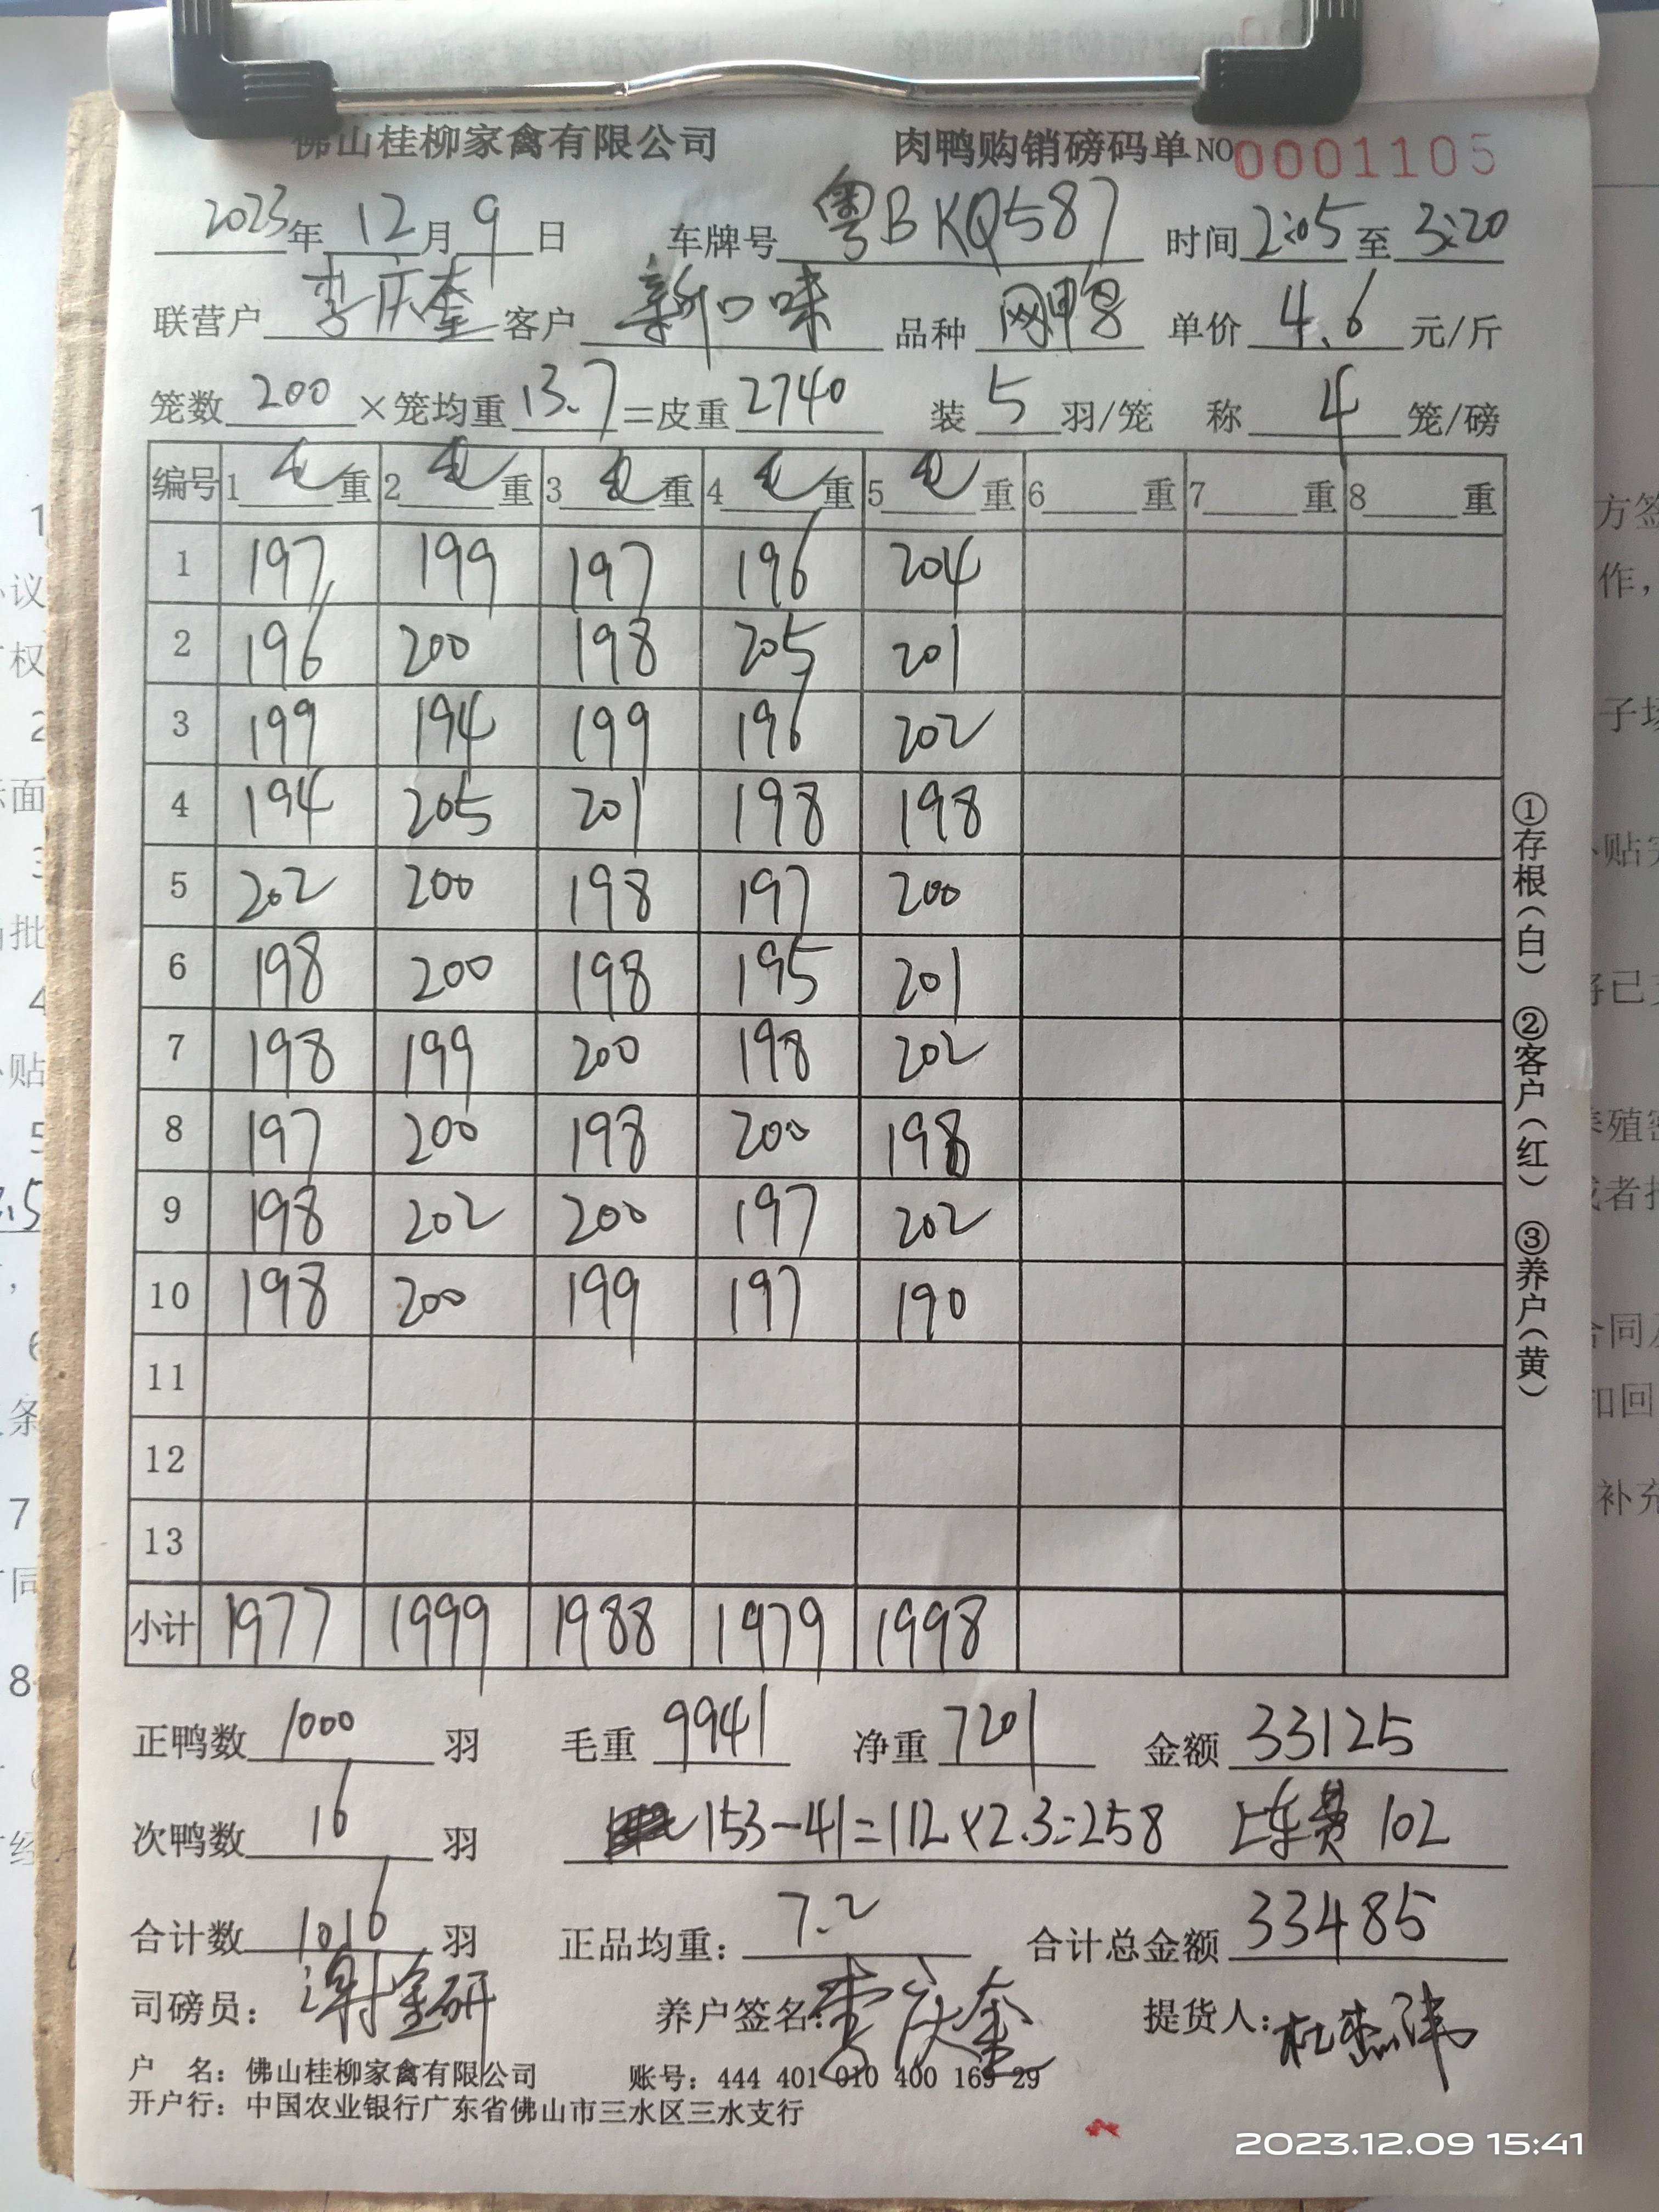 佛山桂柳家禽有限公司 肉鸭购销磅码单 NO 0001105
2023年 12月 9日 车牌号 粤BKQ587 时间 2:05 至 3:20
联营户 李庆奎 客户 新口味 品种 网鸭 单价 4.6 元/斤
笼数 200 ×笼均重 13.7 =皮重 2740 装 5 羽/笼 称 4 笼/磅
编号 1 毛重 2 毛重 3 毛重 4 毛重 5 毛重 6 重 7 重 8 重
1 197 199 197 196 204
2 196 200 198 205 201
3 199 194 199 196 202
4 194 205 201 198 198
5 202 200 198 197 200
6 198 200 198 195 201
7 198 199 200 198 202
8 197 200 198 200 198
9 198 202 200 197 202
10 198 200 199 197 190
11
12
13
小计 1977 1999 1988 1979 1998
正鸭数 1000 羽 毛重 9941 净重 7201 金额 33125
次鸭数 16 羽 153-41=112×2.3=258 上车费 102
合计数 1016 羽 正品均重: 7.2 合计总金额 33485
司磅员: 谢金研 养户签名: 李庆奎 提货人: 杜杰伟
户 名: 佛山桂柳家禽有限公司 账号: 444 401 010 400 169 29
开户行: 中国农业银行广东省佛山市三水区三水支行
①存根(白) ②客户(红) ③养户(黄)
2023.12.09 15:41